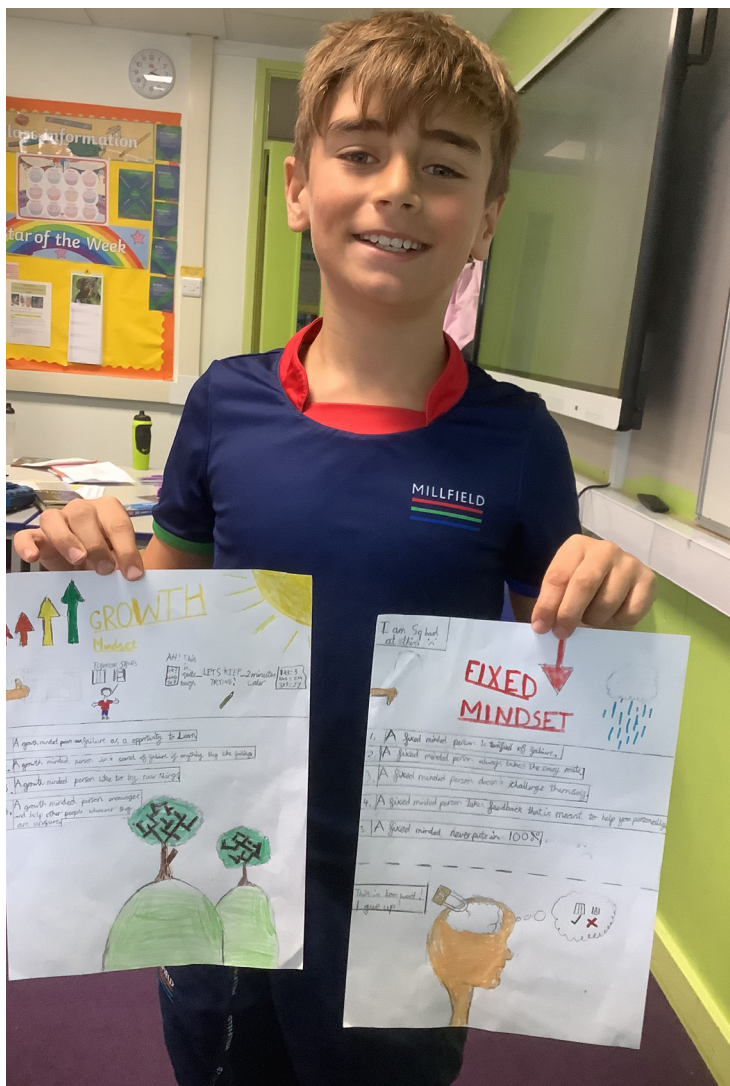 Class Information
Star of the Week
MILLFIELD
GROWTH
Mindset
LETS KEEP
TRYING!
2 minutes
later
A growth minded person see failure as a opportunity to Learn
A growth minded person isn't scared of failure if anything they like
A growth minded person like to try new things
A growth minded person encourages
and help other people whenever they
are
I am So bad
at this
FIXED
MINDSET
1. A fixed minded person is terrified of failure.
2. A fixed minded person always takes the easy route
3. A fixed minded person doesn't challenge themselves
4. A fixed minded person takes feedback that is meant to help you personally
5. A fixed minded never puts in 100%.
This is too hard!
I give up!
MILLFIELD